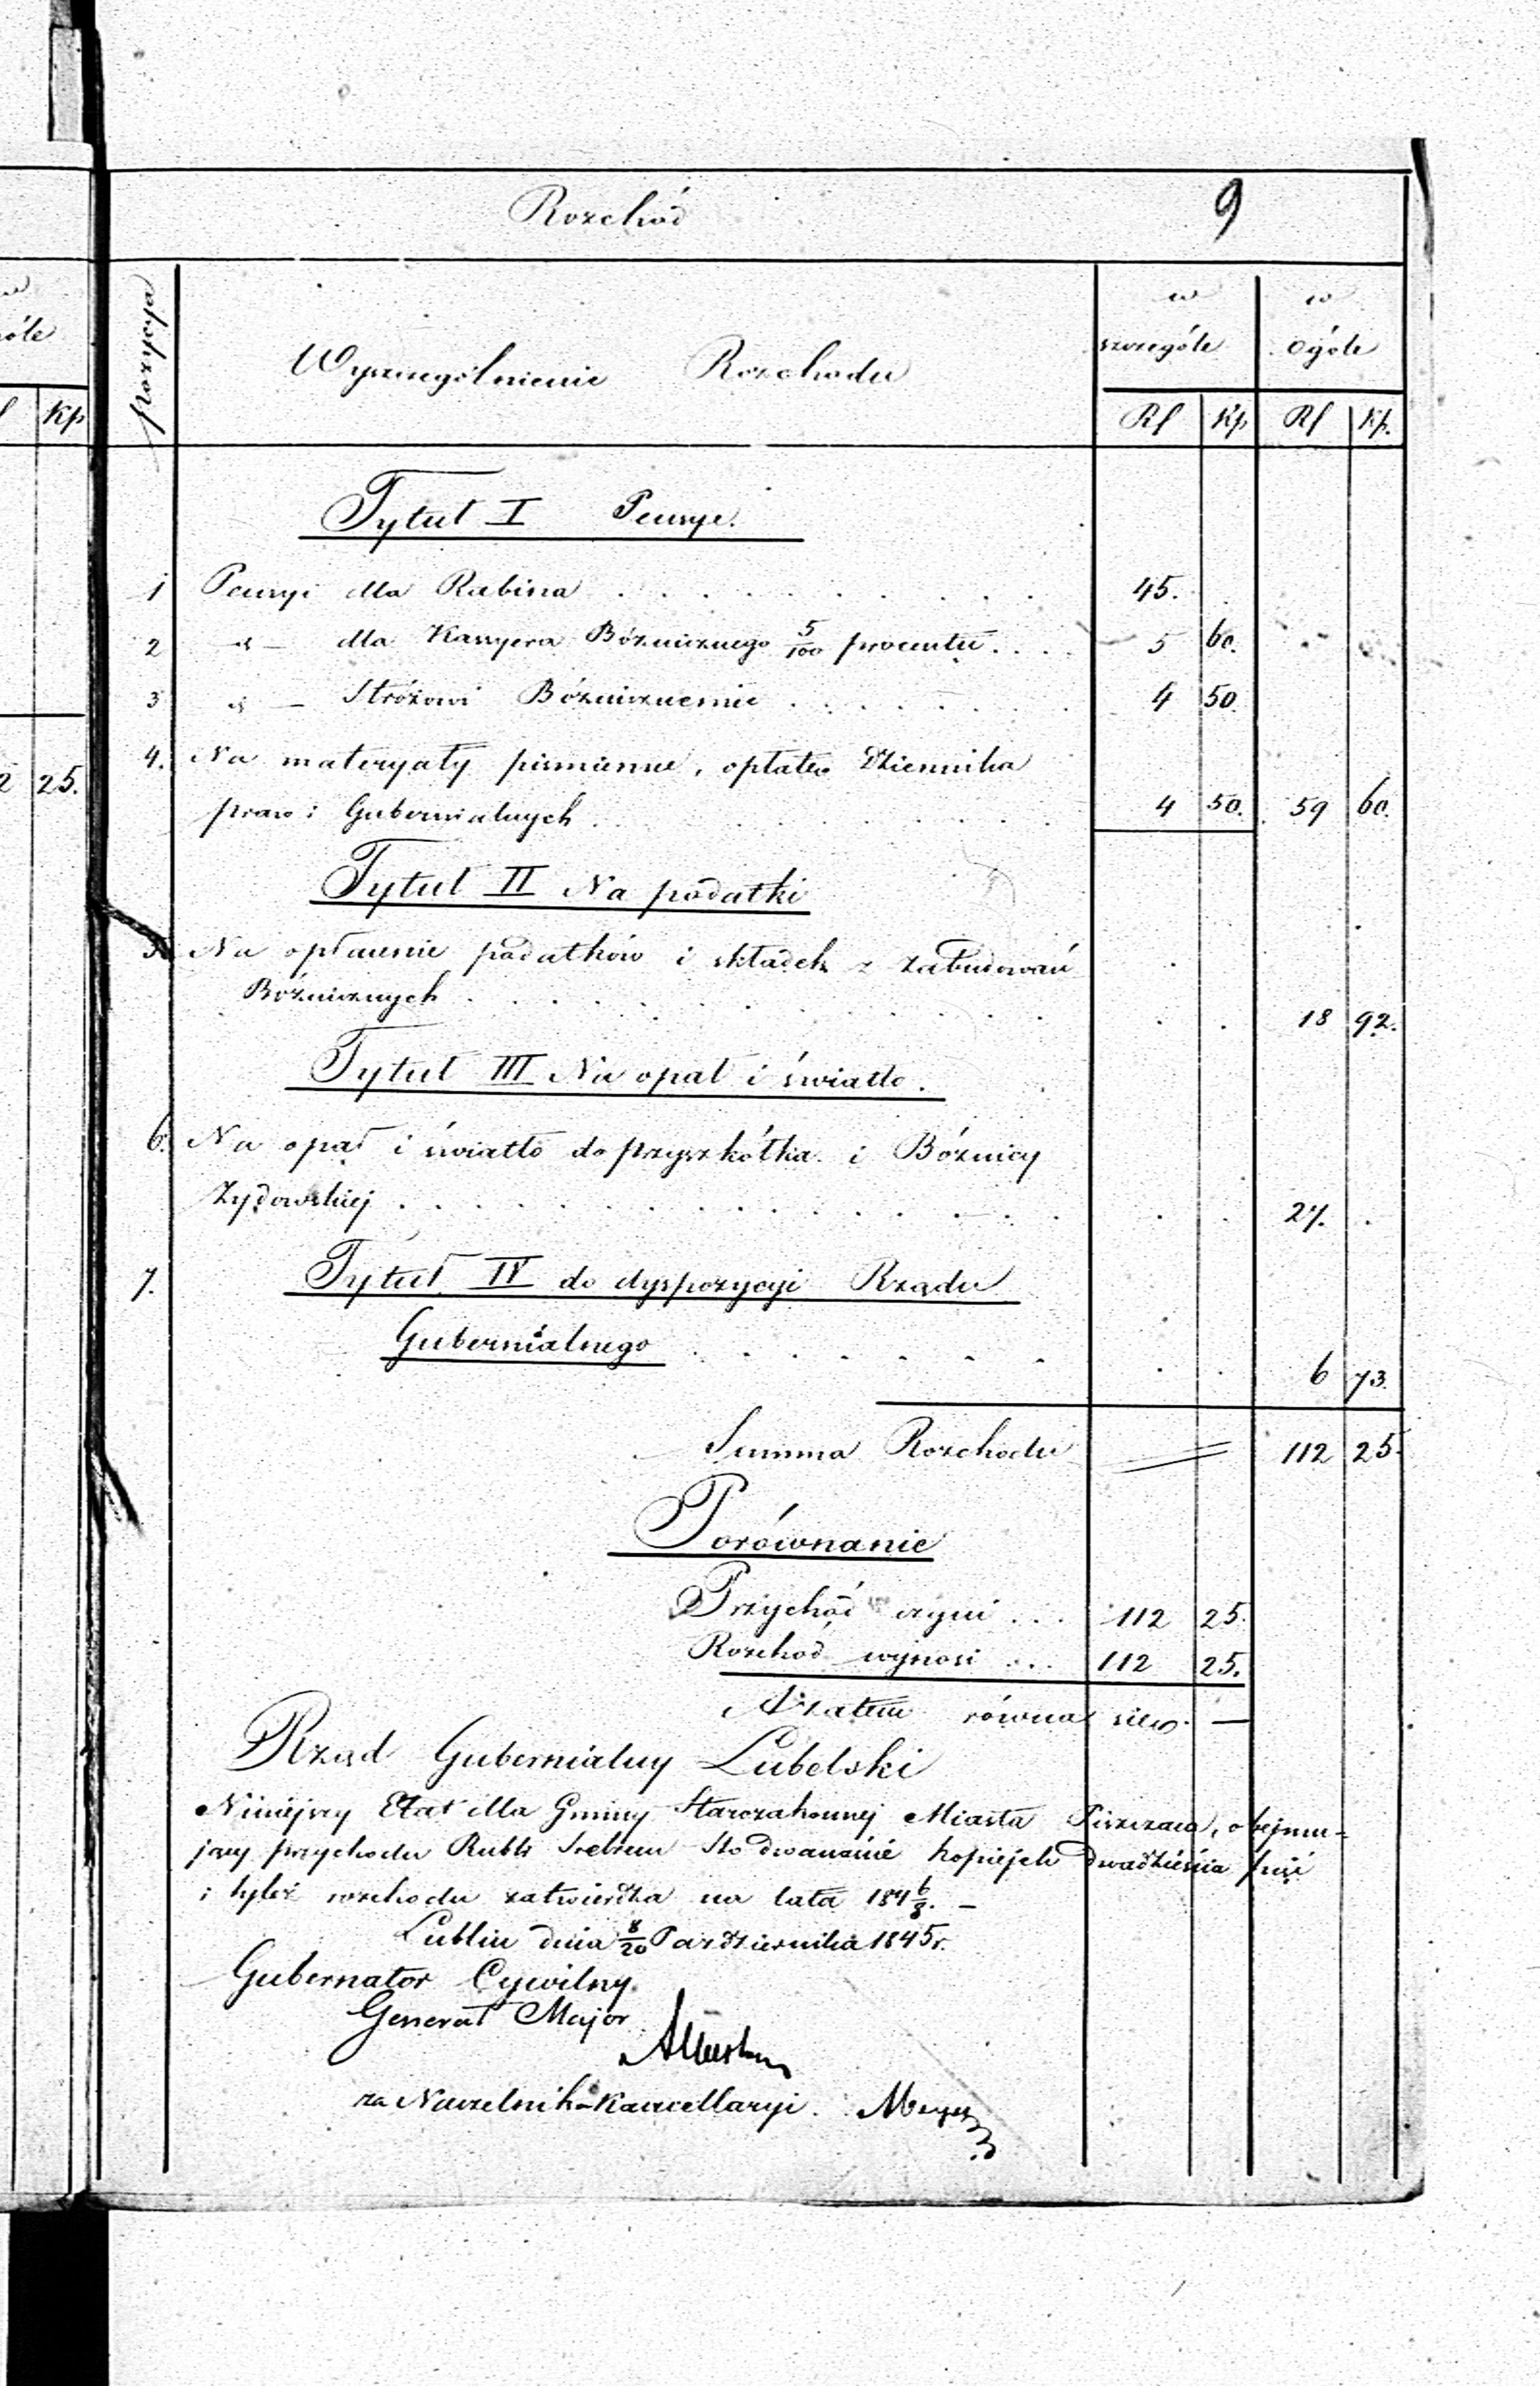 Rozchód 9
w
óle
Kp
2 25.
pozycya
Wyszczególnienie Rozchodu
w szczególe
w ogóle
Rs Kp Rs Kp.
Tytuł I Pensye.
1 Pensyi dla Rabina . . . 45.
2 -"- dla Kassyera Bóżnicznego 5/100 procentu . . . 5 60.
3 -"- Stróżowi Bóżnicznemu . . . 4 50.
4. Na materyały piśmienne, opłatę Dziennika
praw i Gubernialnych . . . 4 50. 59 60.
Tytuł II Na podatki
5. Na opłacenie podatków i składek z zabudowań
Bóżnicznych . . . 18 92.
Tytuł III Na opał i światło.
6. Na opał i światło do przyszkółka i Bóżnicy
Żydowskiej . . . 27.
7. Tytuł IV do dyspozycyi Rządu
Gubernialnego . . . 6 73.
Summa Rozchodu 112 25.
Porównanie
Przychód czyni . . . 112 25.
Rozchód wynosi . . . 112 25.
A zatem równa się —
Rząd Gubernialny Lubelski
Niniejszy Etat dla Gminy Starozakonnej Miasta Piszczaca, obejmu-
jący przychodu Rubli Srebrem Sto dwanaście kopiejek dwadzieścia pięć
i tyleż rozchodu zatwierdza na lata 184 6/8. —
Lublin dnia 8/20 Października 1845 r.
Gubernator Cywilny
Generał Major
za Naczelnika Kancellaryi. Meyer